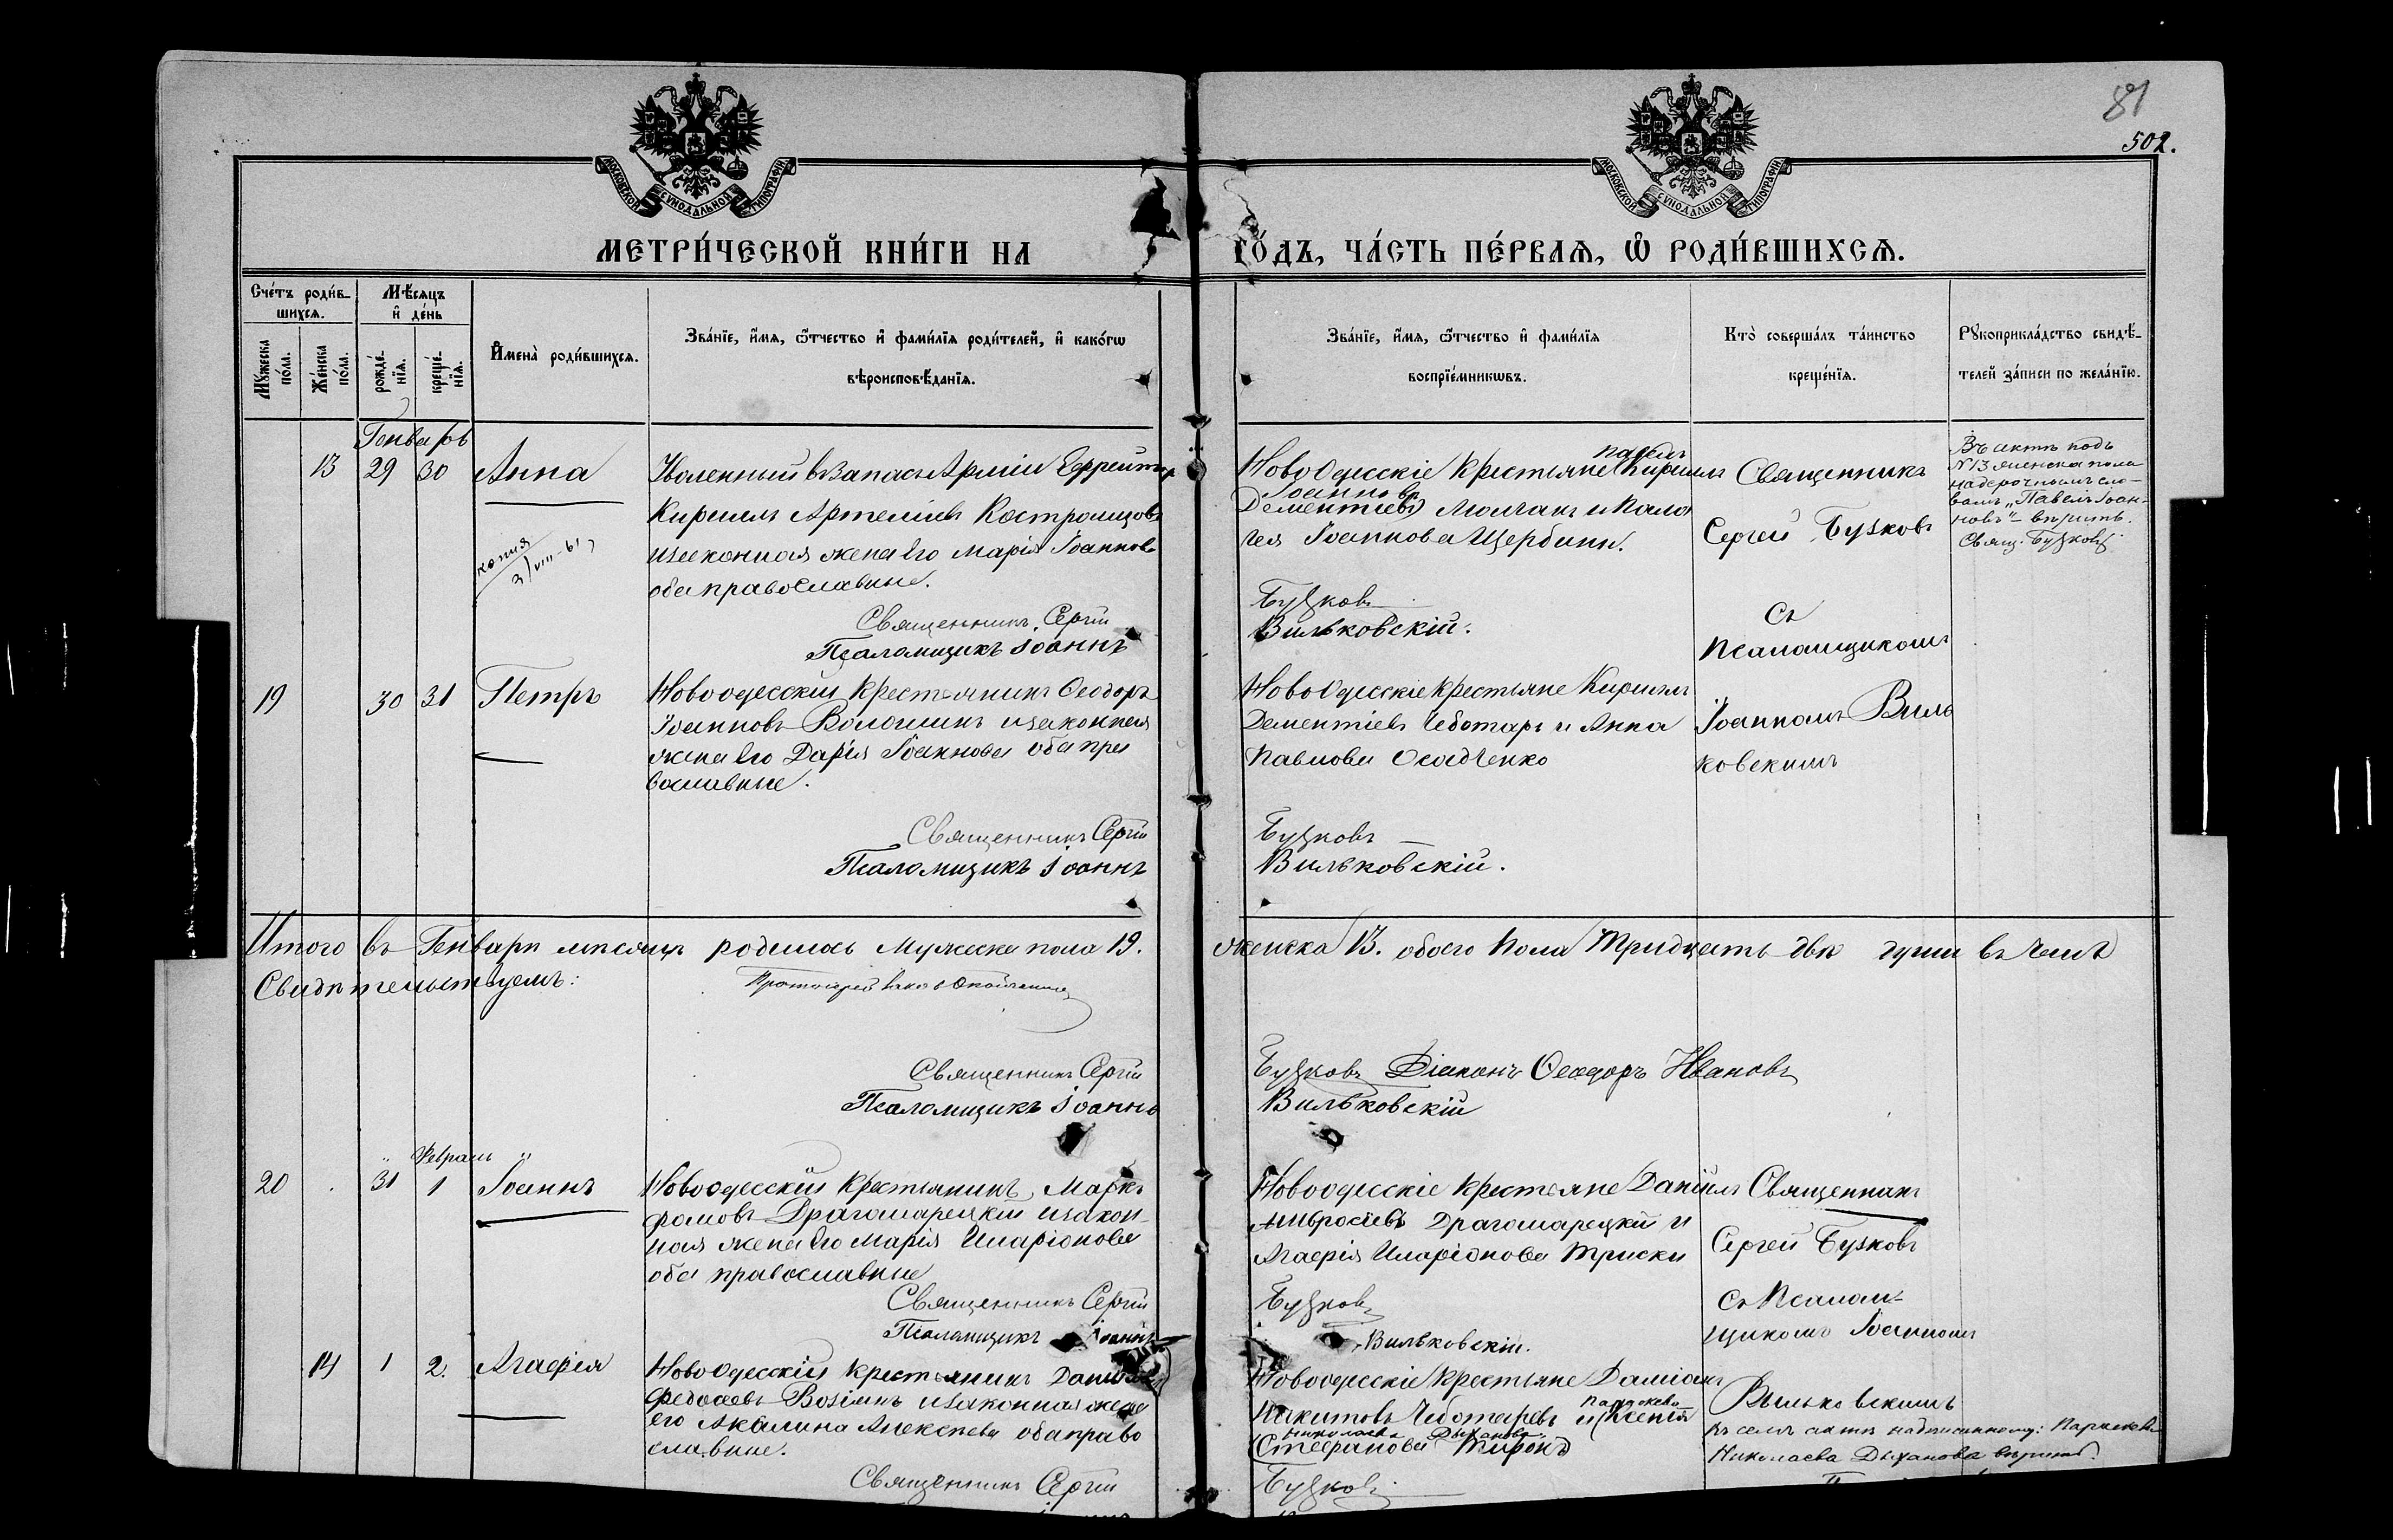 81
502.
МОСКОВСКОЙ СѴНОДАЛЬНОЙ ТИПОГРАФІИ
МОСКОВСКОЙ СѴНОДАЛЬНОЙ ТИПОГРАФІИ
МЕТРИ́ЧЕСКОЙ КНИ́ГИ НА
ГО́ДЪ, ЧА́СТЬ ПЕ́РВАѦ, Ѡ҆ РОДИ́ВШИХСѦ.
Сче́тъ роди́в-
шихсѧ.
Мꙋ́жеска по́ла.
Же́нска по́ла.
Мѣ́сѧцъ
и҆ де́нь
рожде́-
нїѧ.
креще́-
нїѧ.
И҆мена̀ роди́вшихсѧ.
Зва́нїе, и҆́мѧ, ѻ҆́тчество и҆ фами́лїѧ роди́телей, и҆ како́гѡ
вѣроисповѣ́данїѧ.
Зва́нїе, и҆́мѧ, ѻ҆́тчество и҆ фами́лїѧ
воспрїе́мникѡвъ.
Кто̀ соверша́лъ та́инство
креще́нїѧ.
Рꙋкоприкла́дство свидѣ́-
телей за́писи по жела́нїю.
Генварь
13 29 30 Анна
копия
31/VIII-61
Уволенный въ запасъ Арміи Ефрейторъ
Кириллъ Артеміевъ Костромицовъ
и законная жена его Марія Іоаннова
оба православные.
Священникъ Сергій
Псаломщикъ Іоаннъ
Павелъ
НовоОдесскіе крестьяне Кириллъ
Іоанновъ
Дементіевъ Молчанъ и Пела
гея Іоаннова Щербина.
Бузковъ
Вильковскій.
Священникъ
Сергей Бузковъ
Съ
Псаломщикомъ
Въ актѣ подъ
N13 женска пола
надстрочнымъ сло-
вамъ „Павелъ Іоан-
новъ" – вѣрить.
Свящ. Бузковъ
19 30 31 Петръ
Новоодесскій крестьянинъ Ѳеодоръ
Іоанновъ Волошинъ и законная
жена его Дарія Іоаннова оба пра
вославные.
Священникъ Сергій
Псаломщикъ Іоаннъ
НовоОдесскіе крестьяне Кириллъ
Дементіевъ Чеботарь и Анна
Павлова Осадченко
Бузковъ
Вильковскій.
Іоанномъ Виль
ковскимъ
Итого въ Генварѣ мѣсяцѣ родилось Мужеска пола 19. женска 13. обоего пола Тридцать двѣ души въ чемъ
Свидѣтельствуемъ:
Протоіерей
Священникъ Сергій
Псаломщикъ Іоаннъ
Бузковъ Діаконъ Ѳеодоръ Ивановъ
Вильковскій
Февраль
20 31 1 Іоаннъ
Новоодесскій крестьянинъ Маркъ
Фомовъ Драгомарецкій и закон-
ная жена его Марія Иларіонова
оба православные
Священникъ Сергій
Псаломщикъ Іоаннъ
Новоодесскіе крестьяне Даніилъ
Амвросіевъ Драгомарецкій и
Агафія Иларіонова Триски
Бузковъ
Вильковскій.
Священникъ
Сергей Бузковъ
Съ Псалом-
щикомъ Іоанномъ
14 1 2. Агафія
НовоОдесскій крестьянинъ
Федосеевъ Возіянъ и законная жена
его Акилина Алексѣева оба право
славные.
Священникъ Сергій
Новоодесскіе крестьяне Даміанъ
Параскева
Никитовъ Чеботаревъ и Ксенія
Николаева Дыханова
Стефанова Тирокъ
Бузковъ
Вильковскимъ
Въ семъ актѣ надписанному: Параскева
Николаева Дыханова вѣрить.